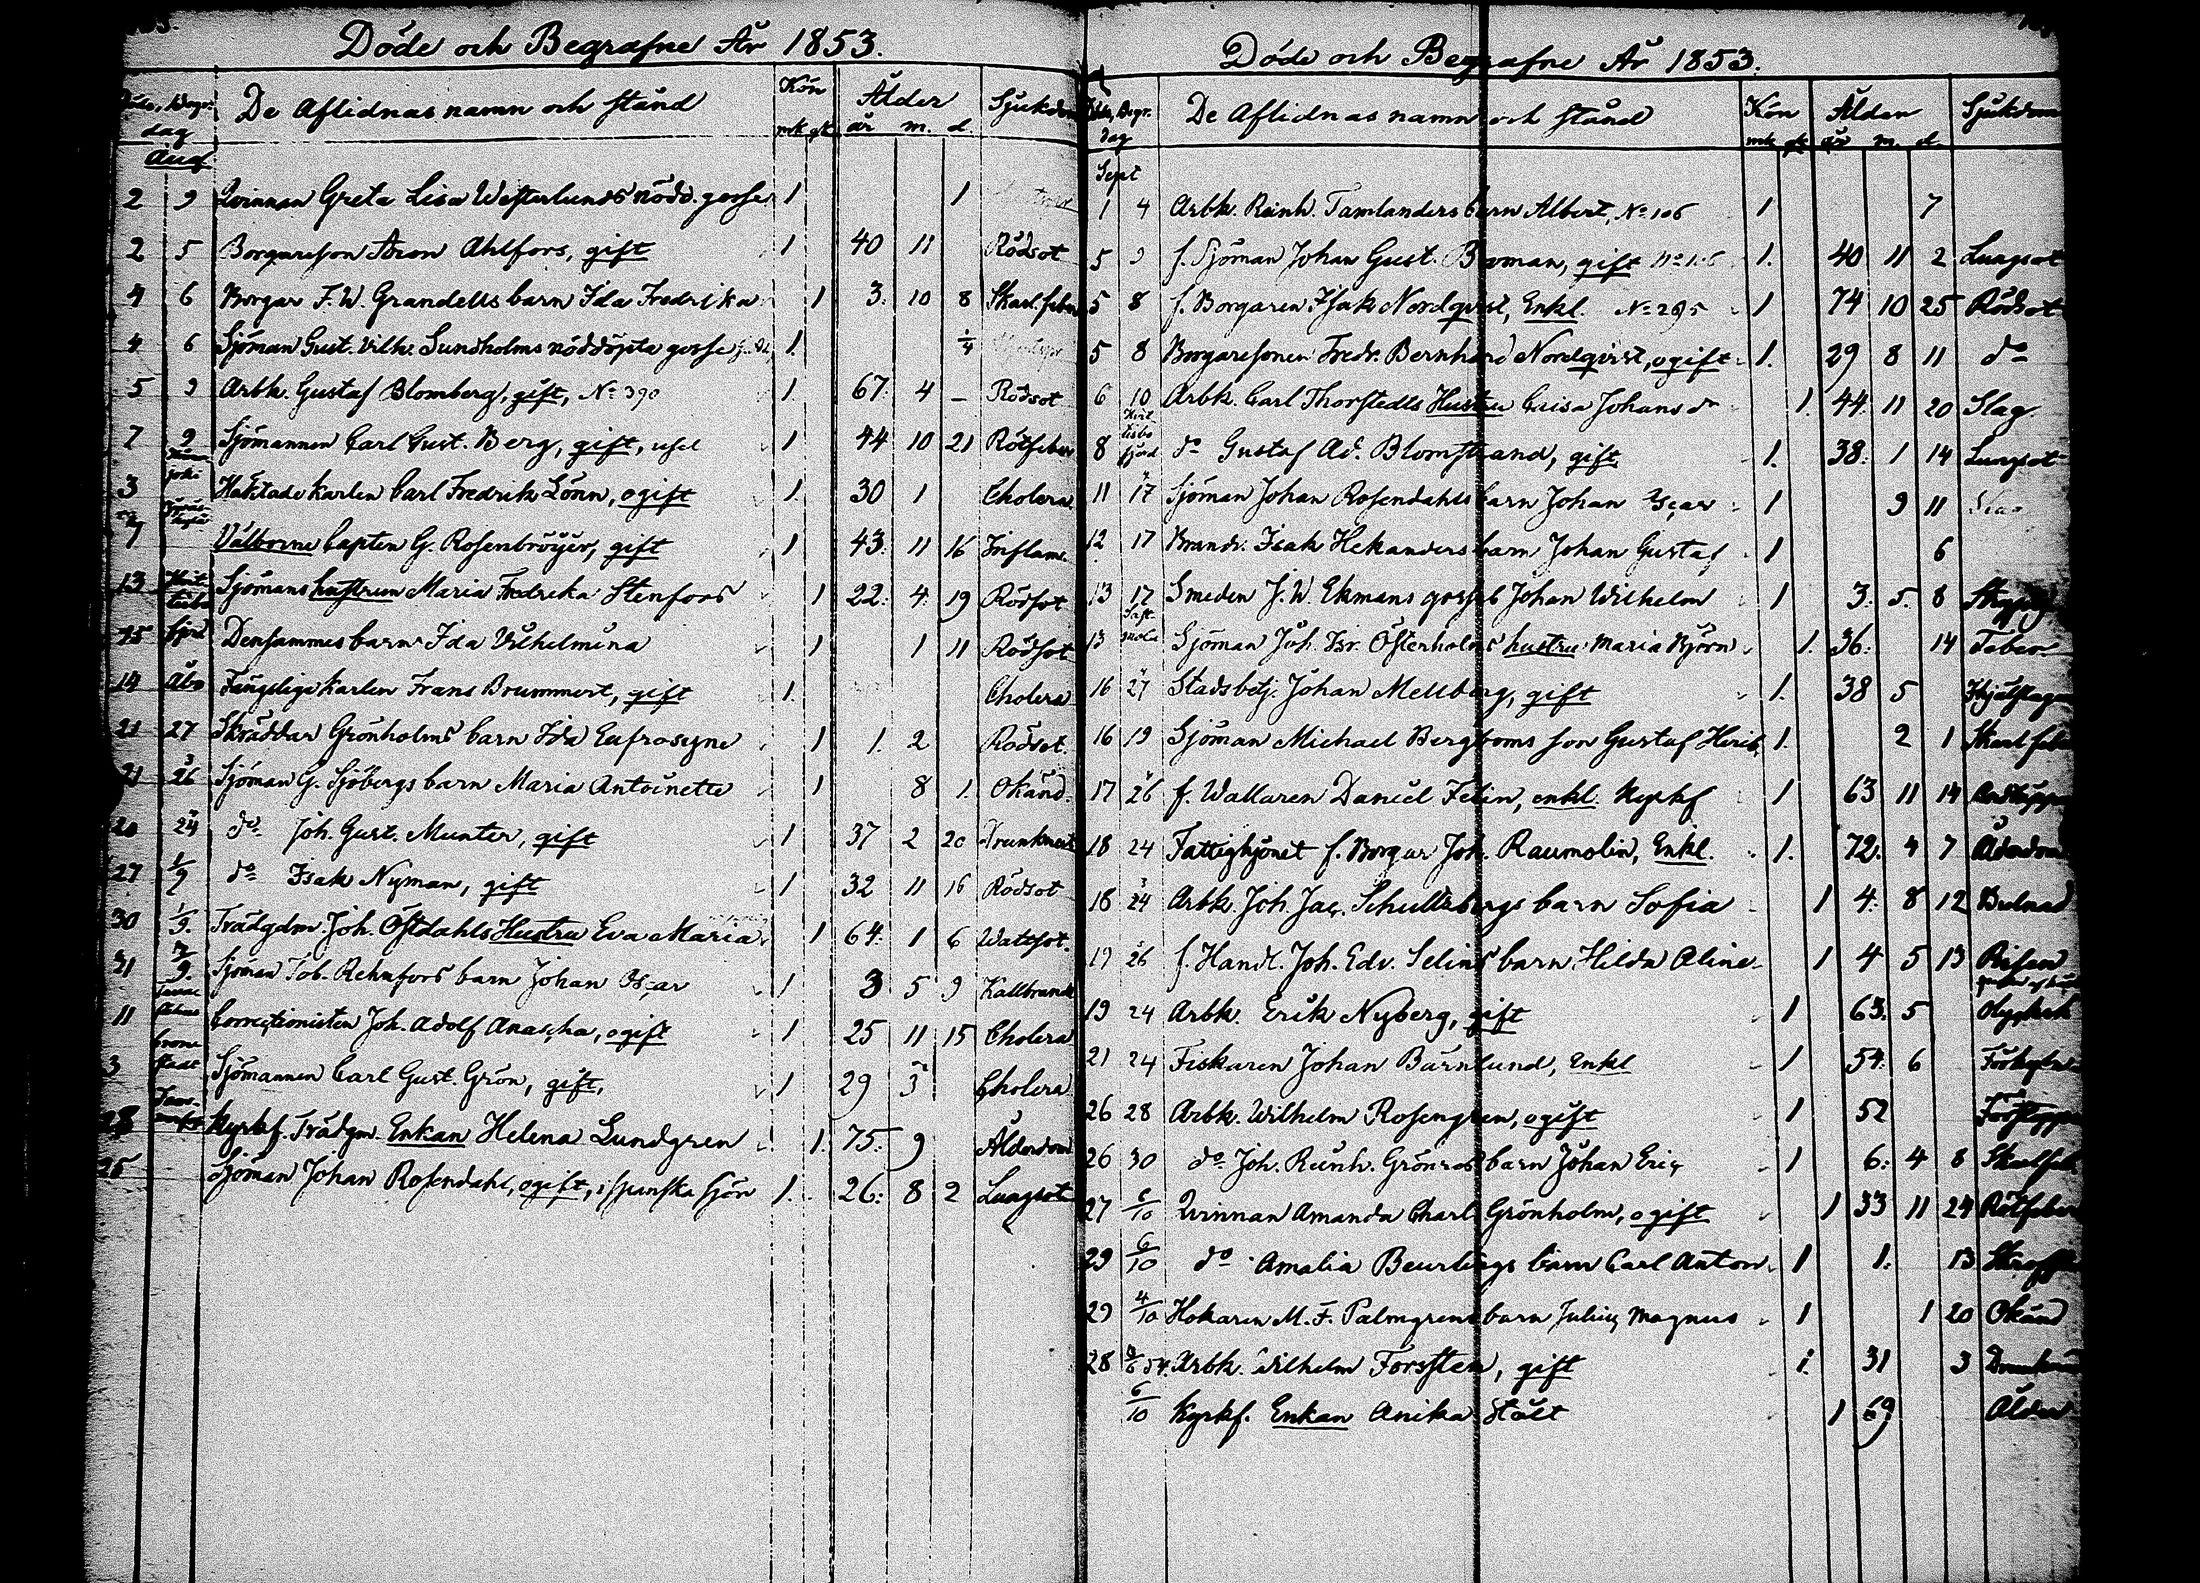 Döde och Begrafne År 1853.
Döde, Begr. dag De Aflidnas namn och stånd Kön mk qk Ålder år m. d. Sjukdom
Aug.
2 9 Qvinnan Greta Lisa Westerlunds nödd. gosse 1 1
2 5 Borgareson Aron Ahlfors, gift 1 40 11 Rödsot
4 6 Borgar F. W. Grandells barn Ida Fredrika 1 3. 10 8 Skarl. feber
4 6 Sjöman Gust. Vilh. Sundholms nöddöpta gosse 1. 1/4
5 9 Arbk. Gustaf Blomberg, gift, No 390 1 67. 4 – Rödsot
7 9 Sjömannen Carl Gust. Berg, gift, 1 44 10 21 Rötfeber
3 Häktade karlen Carl Fredrik Lönn, ogift 1 30 1 Cholera
7 Välborne Capten G. Rosenbröijer, gift 1 43. 11 16 Inflam.
13 Sjömans hustrun Maria Fredrika Stenfors 1 22. 4. 19 Rödsot
15 Densammes barn Ida Vilhelmina 1 1 11 Rödsot
14 Åbo Fängslige karlen Frans Brummert, gift 1. Cholera
21 27 Skräddar Grönholms barn Ida Eufrosyne 1 1. 2 Rödsot.
21 26 Sjöman G. Sjöbergs barn Maria Antoinette 1 8 1. Okänd.
20 24 do Joh. Gust. Munter, gift 1 37 2 20 Drunknat
27 1/9 do Isak Nyman, gift 1 32 11 16 Rödsot
30 1/9. Trädgdm. Joh. Östdahls Hustru Eva Maria 1 64. 1 6 Wattsot.
31 2/9. Sjöman Tob. Rehnfors barn Johan Oscar 1 3 5 9 Kallbrand
11 Correctionisten Joh. Adolf Anascha, ogift 1 25 11 15 Cholera
3 Cronstadt Sjömannen Carl Gust. Grön, gift, 1 29 3 Cholera
28 Kyrkf. Trädgm. Enkan Helena Lundgren 1. 75. 9 Ålderdom
25 Sjöman Johan Rosendahl, ogift, i spanska sjön 1. 26. 8 2 Lungsot
Döde och Begrafne År 1853.
Döde, Begr. dag De Aflidnas namn och stånd Kön mk qk Ålder år m. d. Sjukdom
Sept
1 4 Arbk. Reinh. Tamlanders barn Albert, No 106 1 7
5 9 f. Sjöman Johan Gust. Boman, gift No 106 1. 40 11 2 Lungsot
5 8 f. Borgaren Isak Nordqvist, Enkl. No 295 1 74 10 25 Rödsot
5 8 Borgaresonen Fredr. Bernhard Nordqvist, ogift 1. 29 8 11 do
6 10 Arbk. Carl Thorstedts Hustru Caisa Johans dr 1. 44. 11 20 Slag.
8 do Gustaf Ad. Blomstrand, gift 1. 38. 1 14 Lungsot
11 17 Sjöman Johan Rosendahls barn Johan Oscar 1 9 11
12 17 Brandv. Isak Hekanders barn Johan Gustaf 1 6
13 17 Smeden J. W. Ekmans gosse Johan Wilhelm 1 3. 5. 8
13 Sjöman Joh. Isr. Österholms hustru Maria Björn 1. 36. 14
16 27 Stadsbetj. Johan Mellberg, gift 1. 38 5 Ihjälslagen
16 19 Sjöman Michael Bergboms son Gustaf Henrik 1. 2 1 Skarl feber
17 26 f. Wallaren Daniel Felin, enkl. Kyrkf 1 63 11 14 Andtäppa
18 24 Fattighjonet f. Borgar Joh. Raumolin, Enkl. 1. 72. 4 7 Ålderdom
18 24 Arbk. Joh. Jac. Schultzbergs barn Sofia 1 4. 8 12 Bulnad
19 26 f. Handl. Joh. Edv. Selins barn Hilda Aline 1 4 5 13 Risen
19 24 Arbk. Erik Nyberg, gift 1 63. 5 Olycksh
21 24 Fiskaren Johan Barnlund, Enkl 1 54. 6
26 28 Arbk. Wilhelm Rosengren, ogift 1 52
26 30 do Joh. Reinh. Grönros barn Johan Eric 1 6. 4 8 Skarlfeb
27 6/10 Qvinnan Amanda Charl. Grönholm, ogift 1 33 11 24 Rötfeber
29 6/10 do Amalia Beurlings barn Carl Anton 1 1. 13
29 4/10 Hokaren M. F. Palmgrens barn Julius Magnus 1 1 20 Okänd
28 Arbk. Wilhelm Forssten, gift 1. 31 3
6/10 Kyrkf. Enkan Anika Stålt 1 69 Ålder